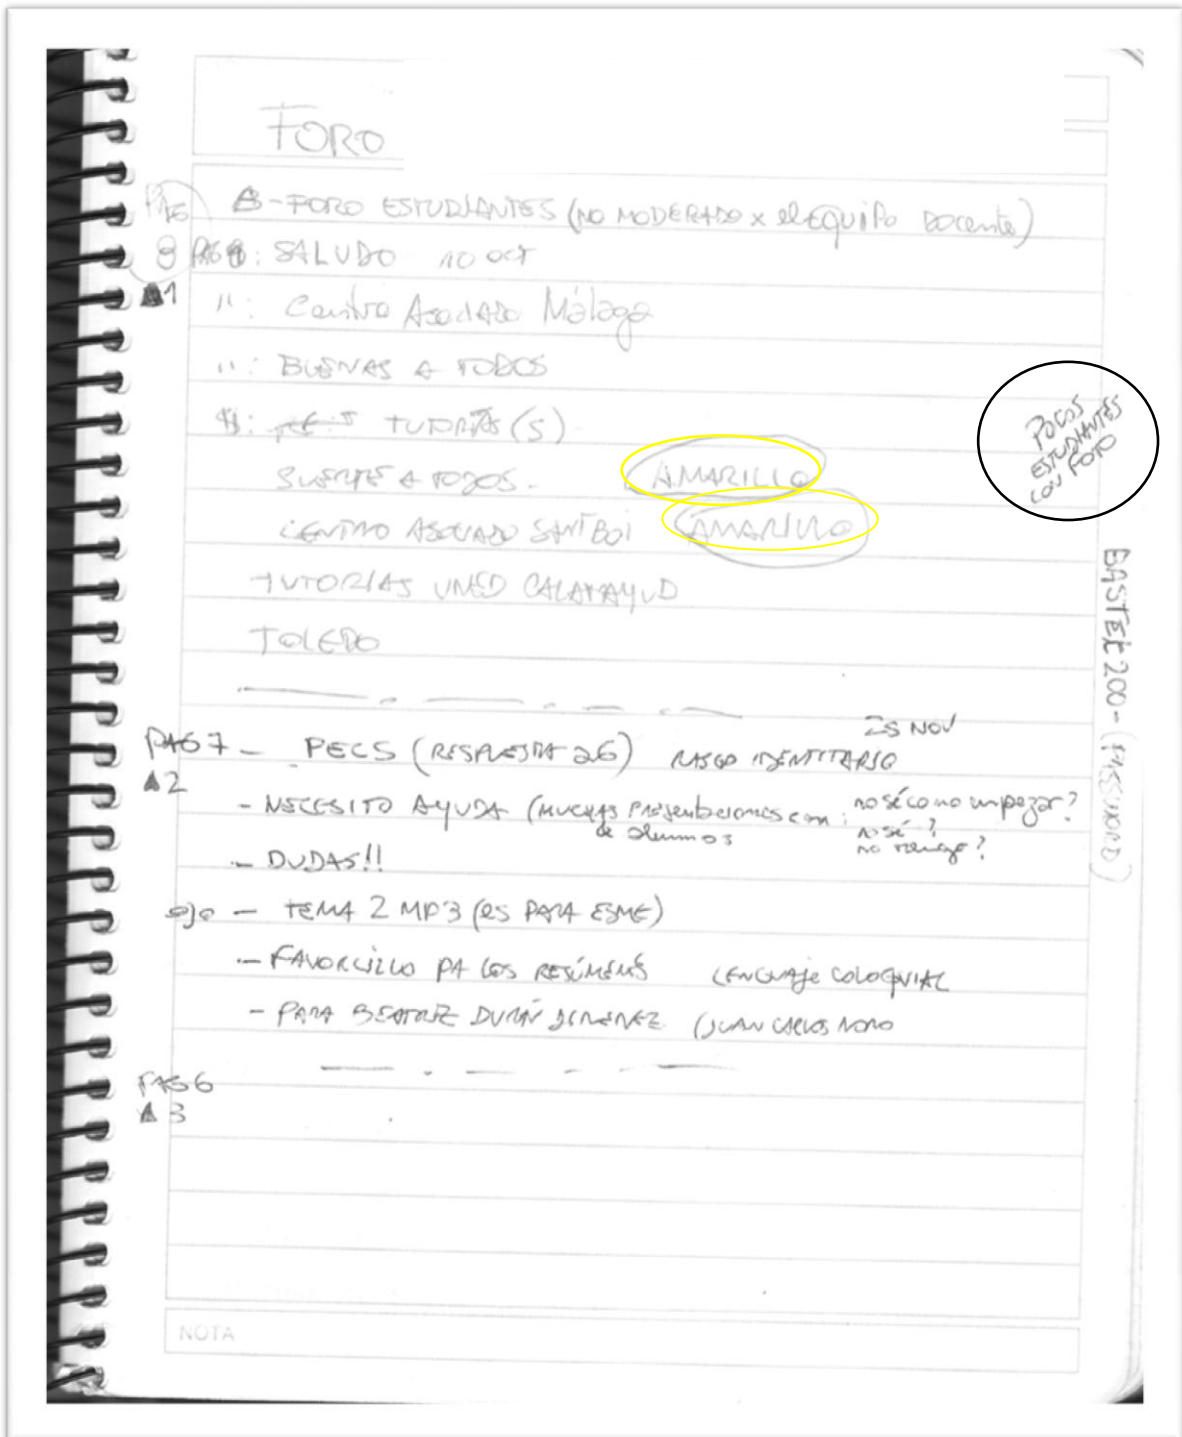 FORO
PAG 8 - FORO ESTUDIANTES (NO MODERADO x el EQUIPO Docente)
8 PAG 8: SALUDO 10 OCT
1 ": Centro Asociado Málaga
": BUENAS A TODOS
": TUTORÍAS (S)
SUERTE A TODOS - AMARILLO
CENTRO ASOCIADO SANT BOI AMARILLO
TUTORIAS UNED CALATAYUD
TOLEDO
POCOS
ESTUDIANTES
CON FOTO
BASTEK200 - (PASSWORD)
25 NOV
PAG 7 - PECS (RESPUESTA 26) RASGO IDENTITARIO
2
- NECESITO AYUDA (MUCHAS Presentaciones con: no sé como empezar?
de alumnos no sé?
no tengo?
- DUDAS!!
ojo - TEMA 2 MP3 (es PARA ESME)
- FAVORCILLO PA LOS RESÚMENES LENGUAJE COLOQUIAL
- PARA BEATRIZ DURÁN JIMENEZ (JUAN CARLOS
PAG 6
3
NOTA